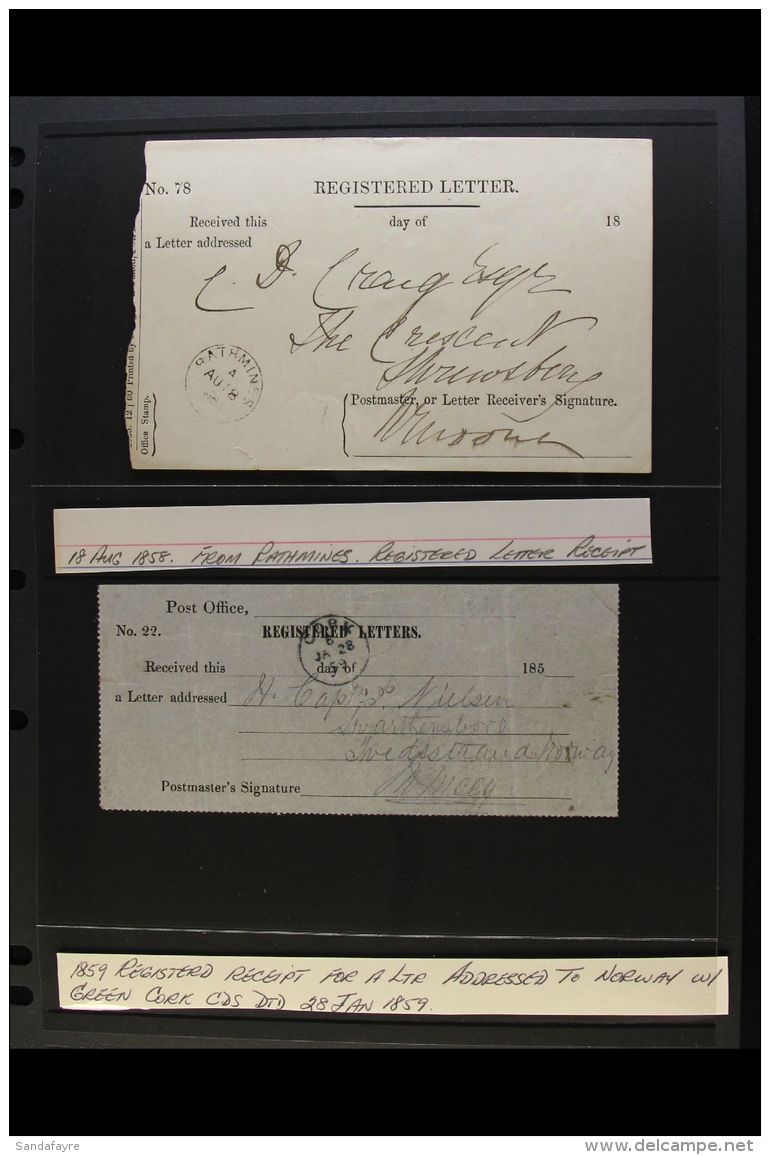 No. 78 REGISTERED LETTER.
Received this day of 18
a Letter addressed
C. D. Craig Esqr
The Crescent
Shrewsbury
RATHMINES
A
AU 18
Office Stamp.
12 | 60 Printed by
Postmaster, or Letter Receiver's Signature.
18 AUG 1858. FROM RATHMINES. REGISTERED LETTER RECEIPT
Post Office,
No. 22. REGISTERED LETTERS.
CORK
JA 28
59
Received this day of 185
a Letter addressed H. Capt Nielsen
Norway
Postmaster's Signature
1859 REGISTERD RECEIPT FOR A LTR ADDRESSED TO NORWAY W/
GREEN CORK CDS DTD 28 JAN 1859.
Sandafayre
www.delcampe.net